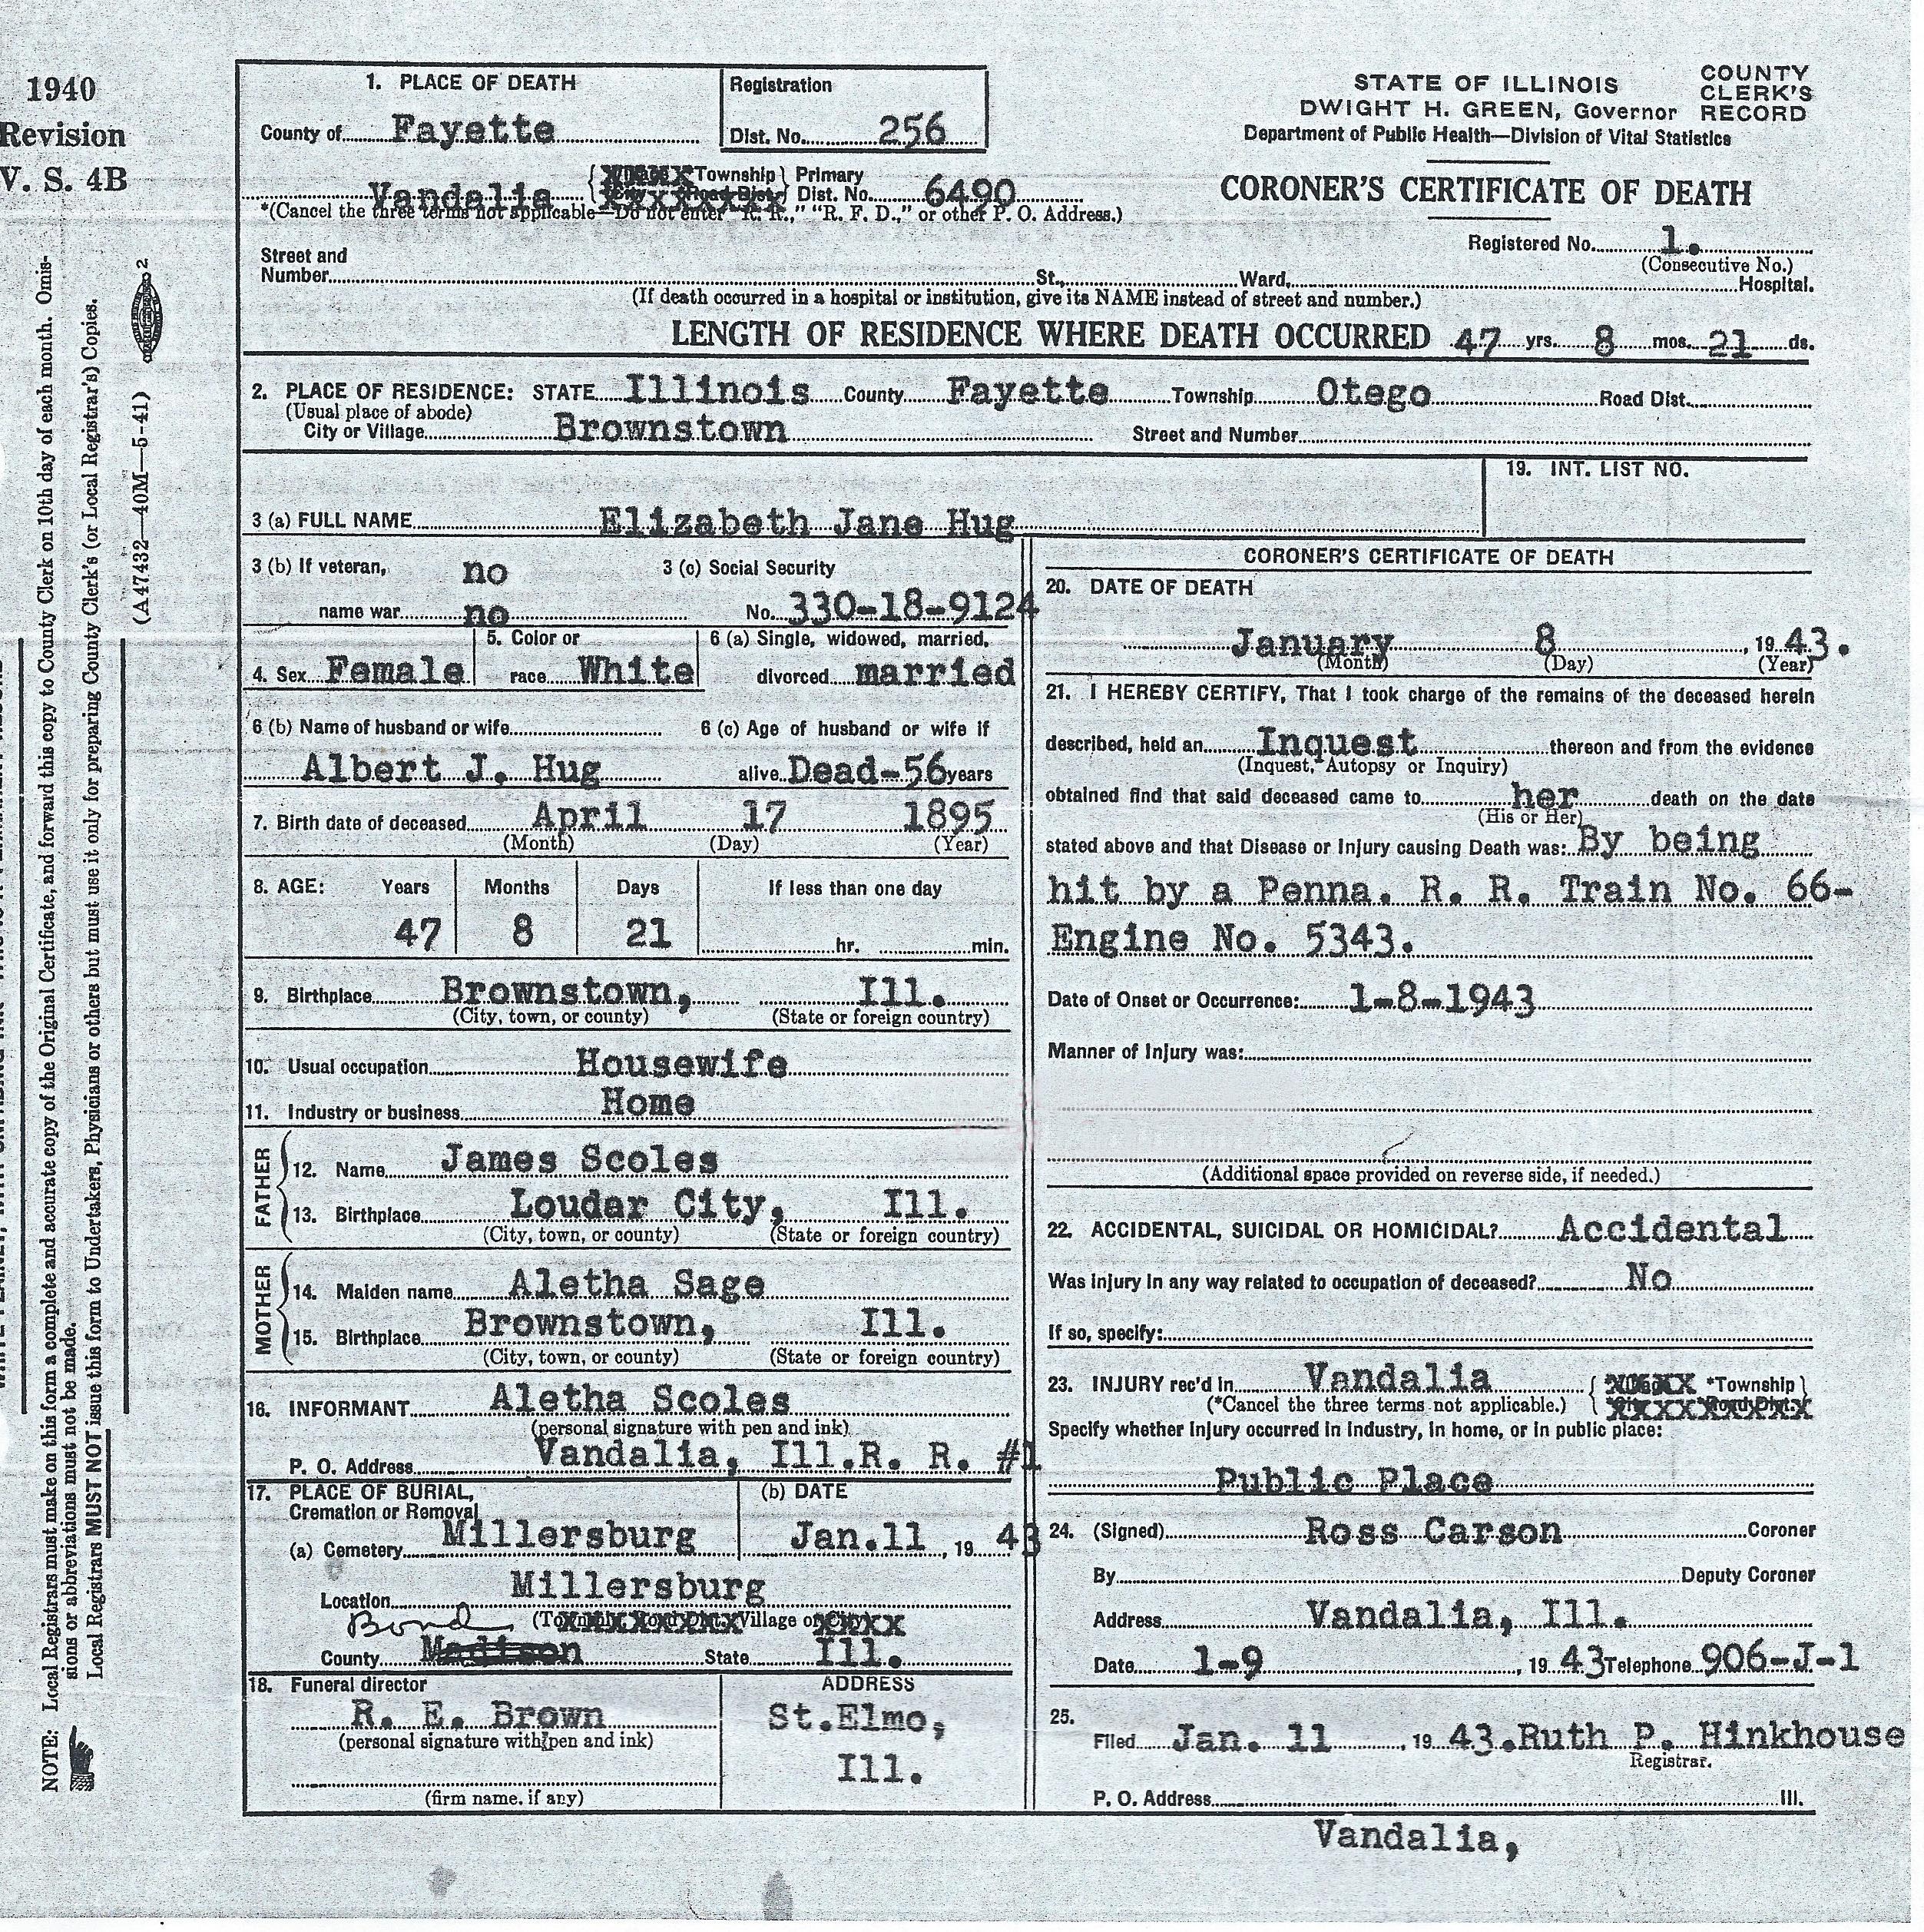 1940
Revision
V. S. 4B
1. PLACE OF DEATH
County of Fayette
Registration
Dist. No. 256
STATE OF ILLINOIS
DWIGHT H. GREEN, Governor
Department of Public Health—Division of Vital Statistics
COUNTY
CLERK'S
RECORD
CORONER'S CERTIFICATE OF DEATH
Vandalia Township Primary Dist. No. 6490
*(Cancel the three terms not applicable—Do not enter "R. R.," "R. F. D.," or other P. O. Address.)
Registered No. 1.
(Consecutive No.)
Street and
Number St., Ward, Hospital.
(If death occurred in a hospital or institution, give its NAME instead of street and number.)
LENGTH OF RESIDENCE WHERE DEATH OCCURRED 47 yrs. 8 mos. 21 ds.
2. PLACE OF RESIDENCE: STATE Illinois County Fayette Township Otego Road Dist.
(Usual place of abode)
City or Village Brownstown Street and Number
19. INT. LIST NO.
3 (a) FULL NAME Elizabeth Jane Hug
3 (b) If veteran, no
name war no
3 (c) Social Security
No. 330-18-9124
4. Sex Female
5. Color or
race White
6 (a) Single, widowed, married,
divorced married
6 (b) Name of husband or wife
Albert J. Hug
6 (c) Age of husband or wife if
alive Dead-56 years
7. Birth date of deceased April 17 1895
(Month) (Day) (Year)
8. AGE: Years Months Days If less than one day
47 8 21 hr. min.
9. Birthplace Brownstown, Ill.
(City, town, or county) (State or foreign country)
10. Usual occupation Housewife
11. Industry or business Home
FATHER
12. Name James Scoles
13. Birthplace Loudar City, Ill.
(City, town, or county) (State or foreign country)
MOTHER
14. Maiden name Aletha Sage
15. Birthplace Brownstown, Ill.
(City, town, or county) (State or foreign country)
16. INFORMANT Aletha Scoles
(personal signature with pen and ink)
P. O. Address Vandalia, Ill.R. R. #1
17. PLACE OF BURIAL,
Cremation or Removal
(a) Cemetery Millersburg
(b) DATE
Jan.11, 19 43
Location Millersburg
Village or
Bond
County Madison State Ill.
18. Funeral director
R. E. Brown
(personal signature with pen and ink)
(firm name, if any)
ADDRESS
St.Elmo,
Ill.
CORONER'S CERTIFICATE OF DEATH
20. DATE OF DEATH
January 8, 19 43.
(Month) (Day) (Year)
21. I HEREBY CERTIFY, That I took charge of the remains of the deceased herein
described, held an Inquest thereon and from the evidence
(Inquest, Autopsy or Inquiry)
obtained find that said deceased came to her death on the date
(His or Her)
stated above and that Disease or Injury causing Death was: By being
hit by a Penna. R. R. Train No. 66-
Engine No. 5343.
Date of Onset or Occurrence: 1-8-1943
Manner of Injury was:
(Additional space provided on reverse side, if needed.)
22. ACCIDENTAL, SUICIDAL OR HOMICIDAL? Accidental
Was injury in any way related to occupation of deceased? No
If so, specify:
23. INJURY rec'd in Vandalia *Township
(*Cancel the three terms not applicable.)
Specify whether injury occurred in industry, in home, or in public place:
Public Place
24. (Signed) Ross Carson Coroner
By Deputy Coroner
Address Vandalia, Ill.
Date 1-9, 19 43 Telephone 906-J-1
25.
Filed Jan. 11, 19 43. Ruth P. Hinkhouse
Registrar.
P. O. Address Ill.
Vandalia,
NOTE: Local Registrars must make on this form a complete and accurate copy of the Original Certificate, and forward this copy to County Clerk on 10th day of each month. Omis-
sions or abbreviations must not be made.
Local Registrars MUST NOT issue this form to Undertakers, Physicians or others but must use it only for preparing County Clerk's (or Local Registrar's) Copies.
(A47432—40M—5-41) 2